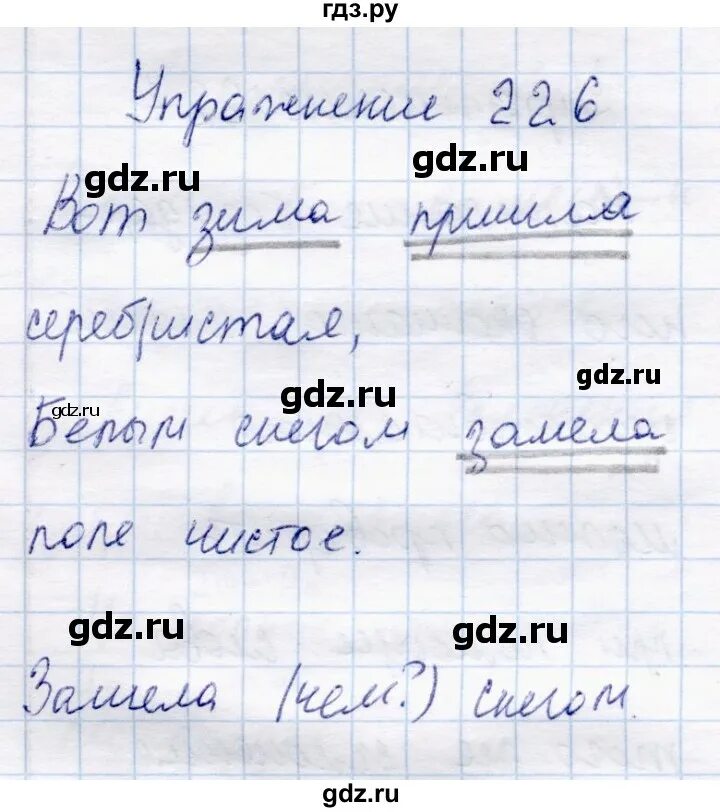 гдз.ру
Упражнение 226
gdz.ru
gdz.ru
Вот зима пришла
серебристая,
gdz.ru
gdz.ru
gdz.ru
Белым снегом замела
поле чистое.
gdz.ru
gdz.ru
Замела (чем?) снегом.
gdz.ru